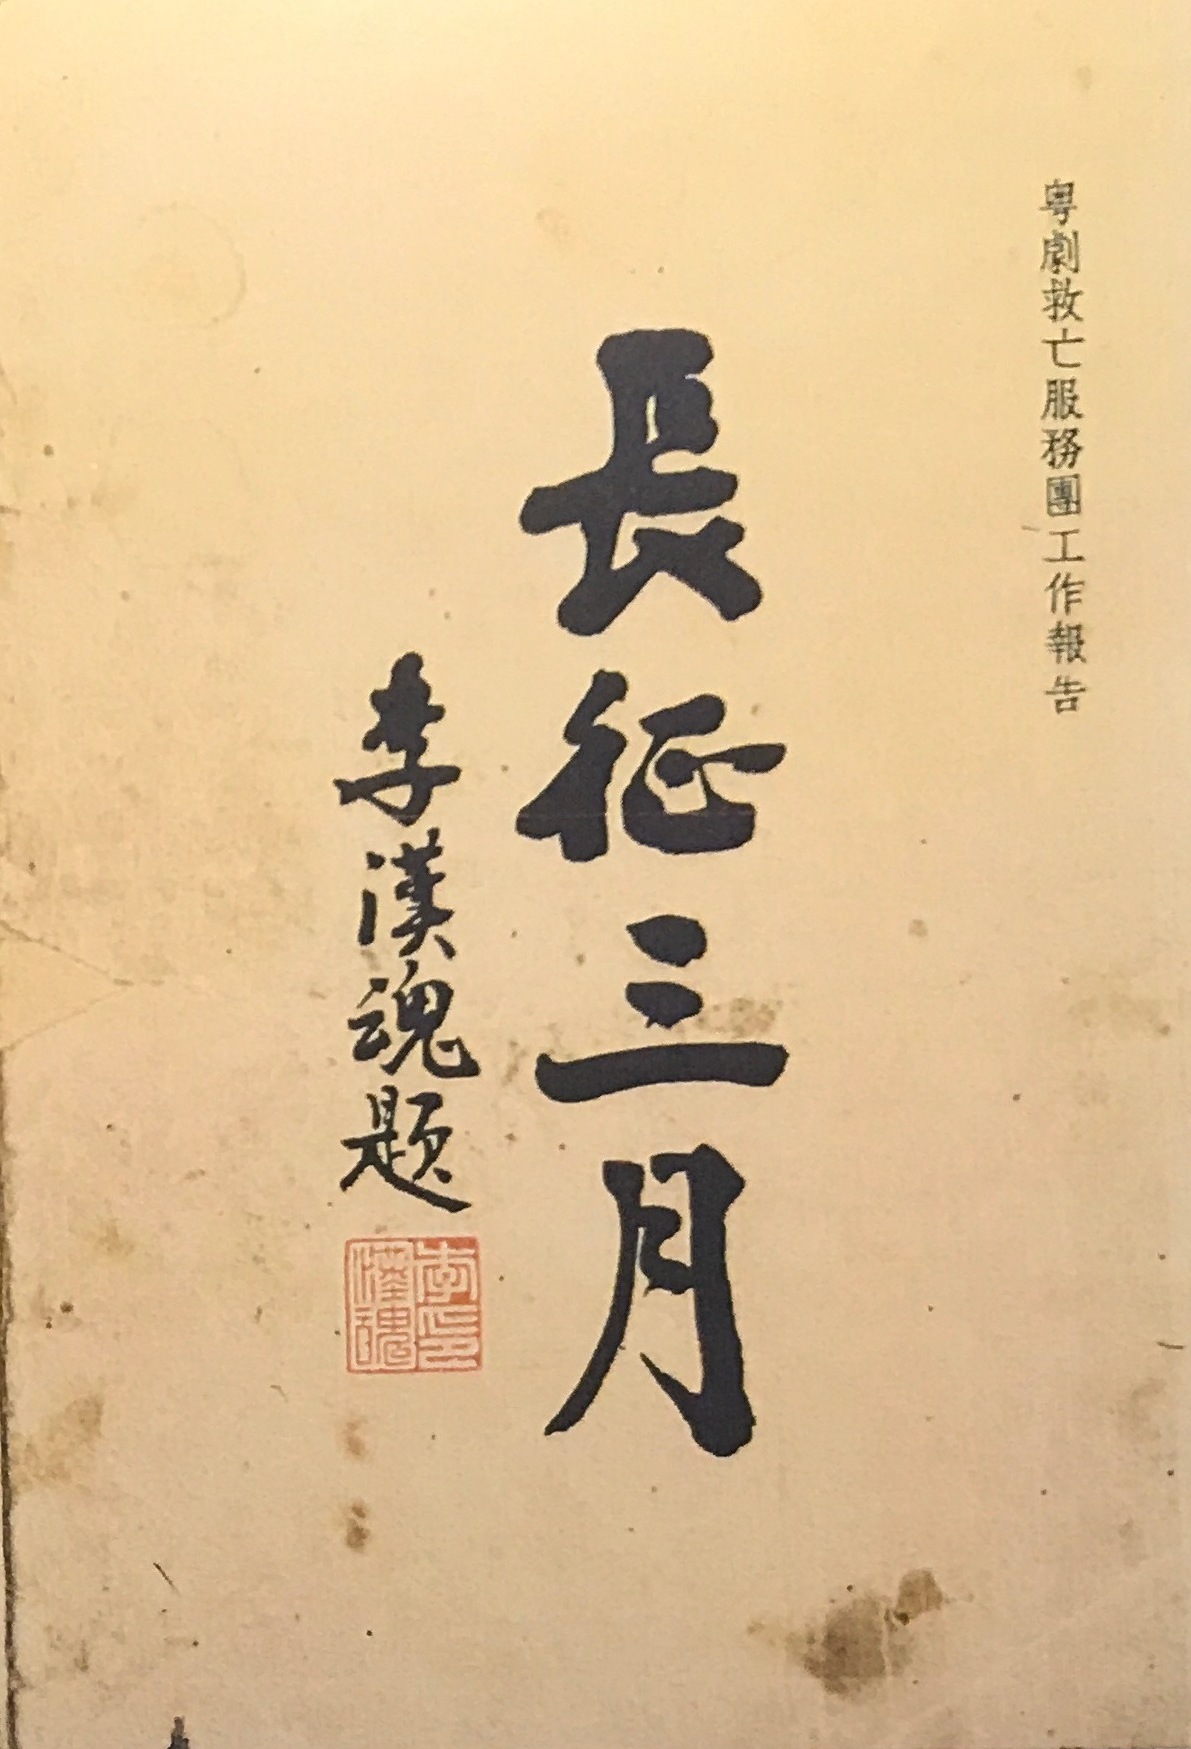 粵劇救亡服務團工作報告
長征三月
李漢魂題
李印
漢魂